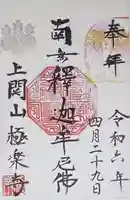 奉拝
令和六年
四月二十九日
南無釋迦牟尼佛
上関山極楽寺